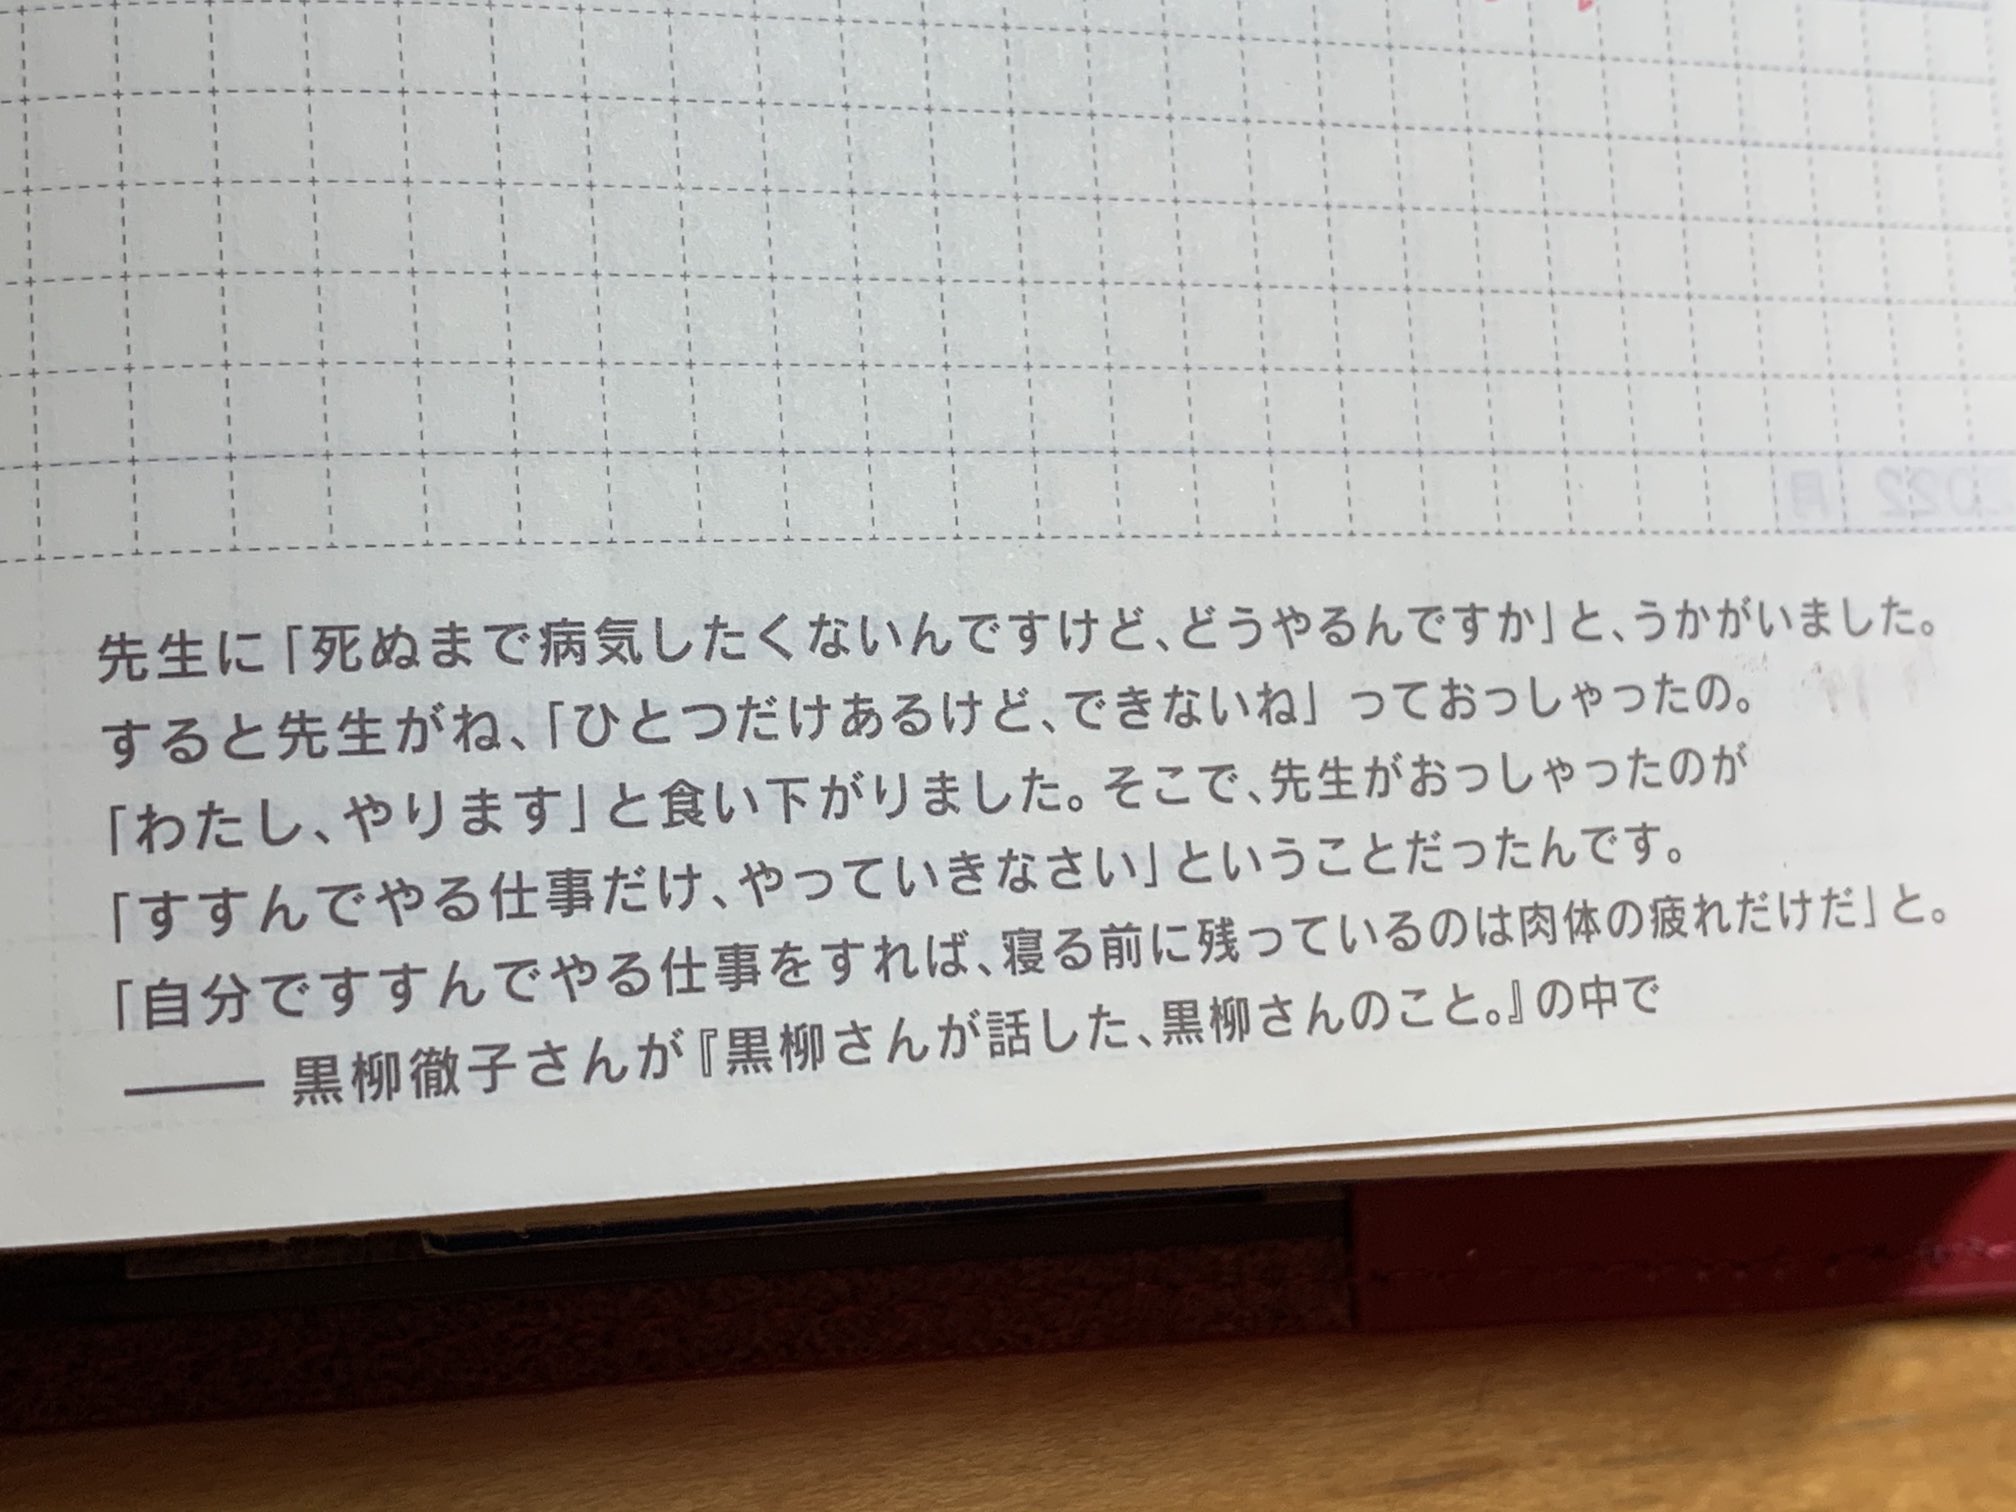 先生に「死ぬまで病気したくないんですけど、どうやるんですか」と、うかがいました。
すると先生がね、「ひとつだけあるけど、できないね」っておっしゃったの。
「わたし、やります」と食い下がりました。そこで、先生がおっしゃったのが
「すすんでやる仕事だけ、やっていきなさい」ということだったんです。
「自分ですすんでやる仕事をすれば、寝る前に残っているのは肉体の疲れだけだ」と。
―― 黒柳徹子さんが『黒柳さんが話した、黒柳さんのこと。』の中で